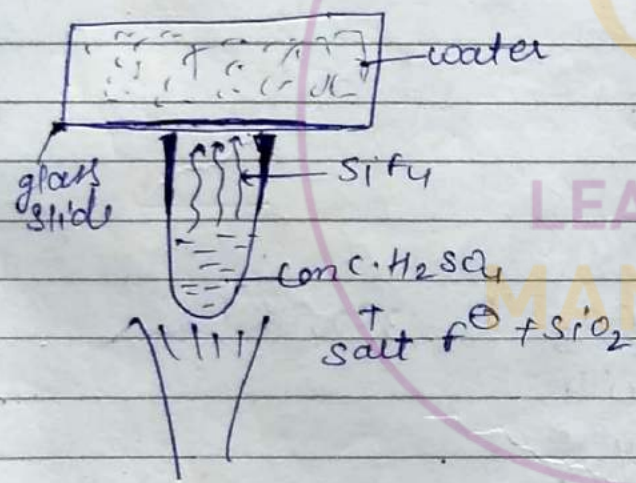 water
glass
slide
SiF4
conc. H2SO4
+
salt F⊖ + SiO2
LEA
MAN